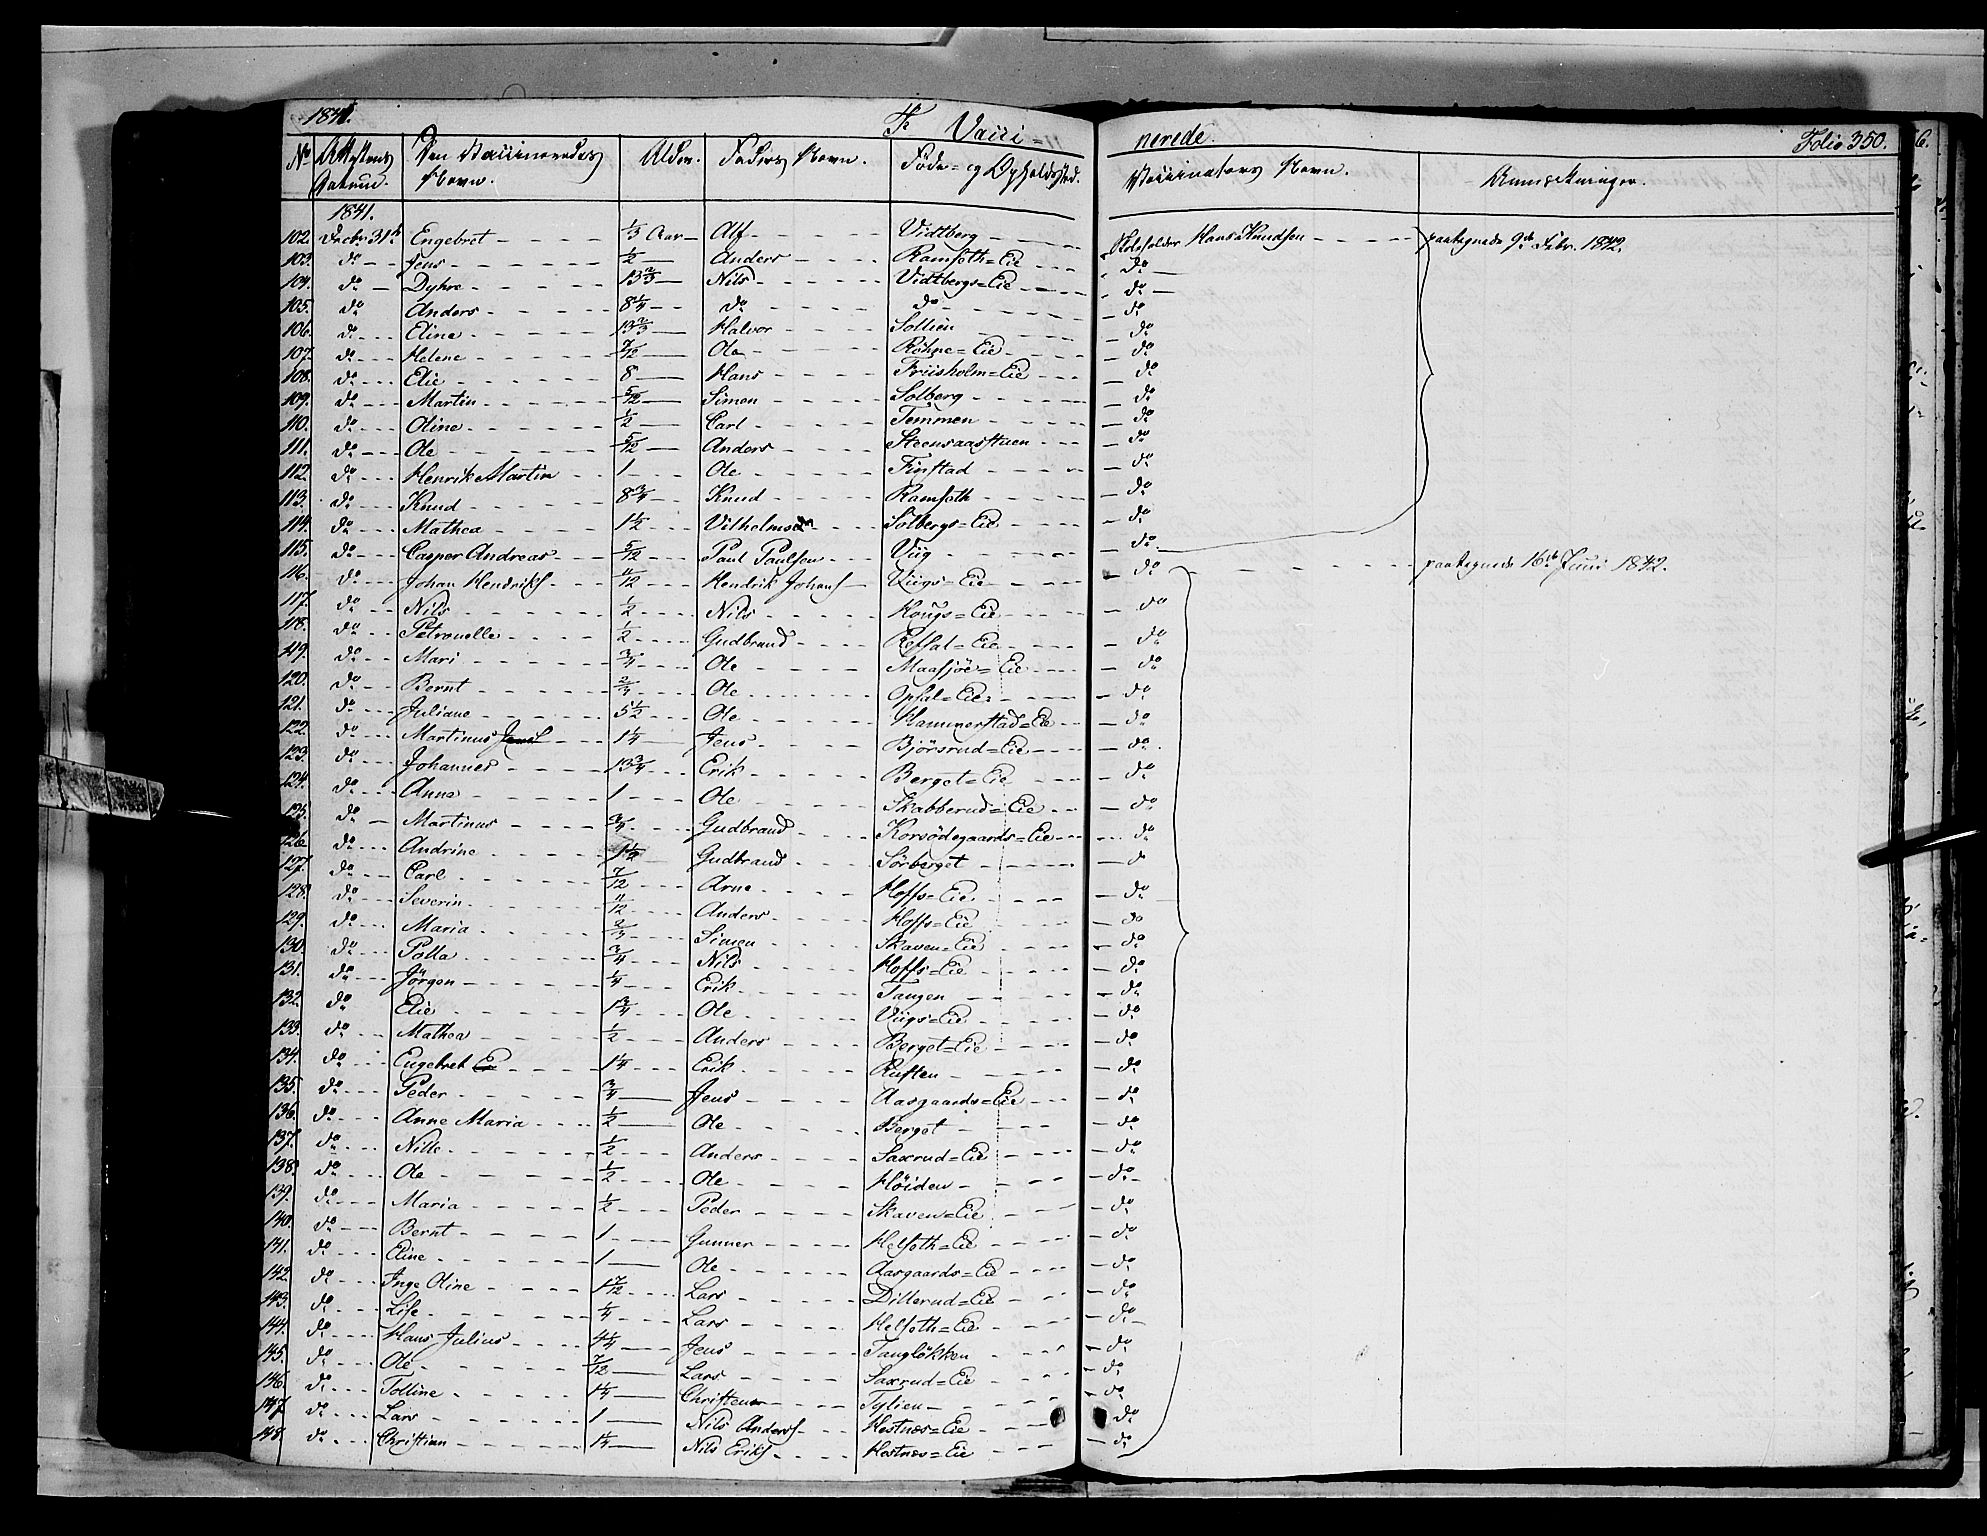 1841. Vacci= nerede. Folio 350.
No Attestens Datum. Den Vaccineredes Navn. Alder. Faders Navn. Föde- og Opholdssted. Vaccinators Navn. Anmærkninger.
1841.
102. Decbr 31te Engebret 1/3 Aar Alf Vidtberg Skoleholder Hans Knudsen paategnede 9de Febr. 1842.
103. do Jens 1/2 Anders Ramsoth=Eie do
104. do Dyhre 13 2/3 Nils Vidtbergs=Eie do
105. do Anders 8 1/4 do do do
106. do Eline 13 2/3 Halvor Sollien do
107. do Helene 7/12 Ole Röhne=Eie do
108. do Elie 8 Hans Friisholm=Eie do
109. do Martin 5/12 Simen Solberg do
110. do Oline 1/2 Carl Temmen do
111. do Ole 5/12 Anders Steensaasstuen do
112. do Henrik Martin 1 Ole Finstad do
113. do Knud 8 3/4 Knud Ramsoth do
114. do Mathea 1 1/2 Vilhelms Solbergs=Eie do
115. do Casper Andreas 5/12 Paul Paulsen Viig do
116. do Johan Hendriks 11/12 Hendrik Johans Viigs=Eie do paategnede 16de Juni 1842.
117. do Nils 1/2 Nils Hougs=Eie do
118. do Petronelle 1/2 Gudbrand Refsal=Eie do
119. do Mari 3/4 Ole Maasjöe=Eie do
120. do Bernt 2/4 Ole Opsal=Eie do
121. do Juliane 5 1/2 Ole Hammerstad=Eie do
122. do Martinus 1 1/4 Jens Björsrud=Eie do
123. do Johannes 13 3/4 Erik Berget=Eie do
124. do Anne 1 Ole Skabberud=Eie do
125. do Martinus 3/4 Gudbrand Korsödegaards=Eie do
126. do Andrine 1 1/2 Gudbrand Sörberget do
127. do Carl 7/12 Arne Hoffs=Eie do
128. do Severin 11/12 Anders Hoffs=Eie do
129. do Maria 2/4 Simen Skaven=Eie do
130. do Polla 3/4 Nils Hoffs=Eie do
131. do Jörgen 1/4 Erik Tangen do
132. do Elie 1 3/4 Ole Viigs=Eie do
133. do Mathea 1/2 Anders Berget=Eie do
134. do Engebret 1 1/4 Erik Rusten do
135. do Peder 3/4 Jens Aasgaards=Eie do
136. do Anne Maria 1/2 Ole Berget do
137. do Nille 1/2 Anders Saxrud=Eie do
138. do Ole 1/2 Ole Höiden do
139. do Maria 1/2 Peder Skaven=Eie do
140. do Bernt 1 Gunner Helsoth=Eie do
141. do Eline 1 Ole Aasgaards=Eie do
142. do Inge Oline 1 7/12 Lars Dillerud=Eie do
143. do Lise 1/4 Lars Helsoth=Eie do
144. do Hans Julius 4 1/4 Jens Tanglökken do
145. do Ole 7/12 Lars Saxrud=Eie do
146. do Tolline 1 1/4 Christen Tylien do
147. do Lars 1 Nils Anders Hestnæs=Eie do
148. do Christian 1 1/4 Nils Eriks Hestnæs=Eie do